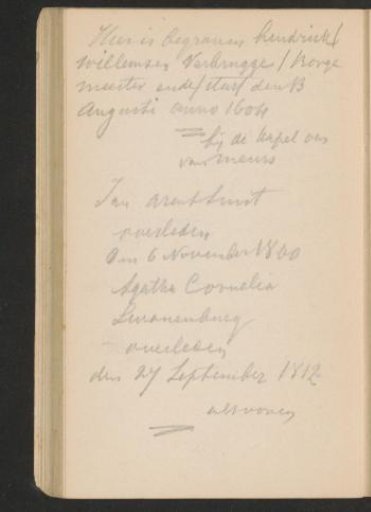 Hier is begraven hendrick
Willemsen Verbrugge / Borge
meester ende starf den 13
Augusti anno 1604
bij de kapel
van meurs
Jan
overleden
den 6 November 1800
Agatha Cornelia
overleden
den 27 September 1812